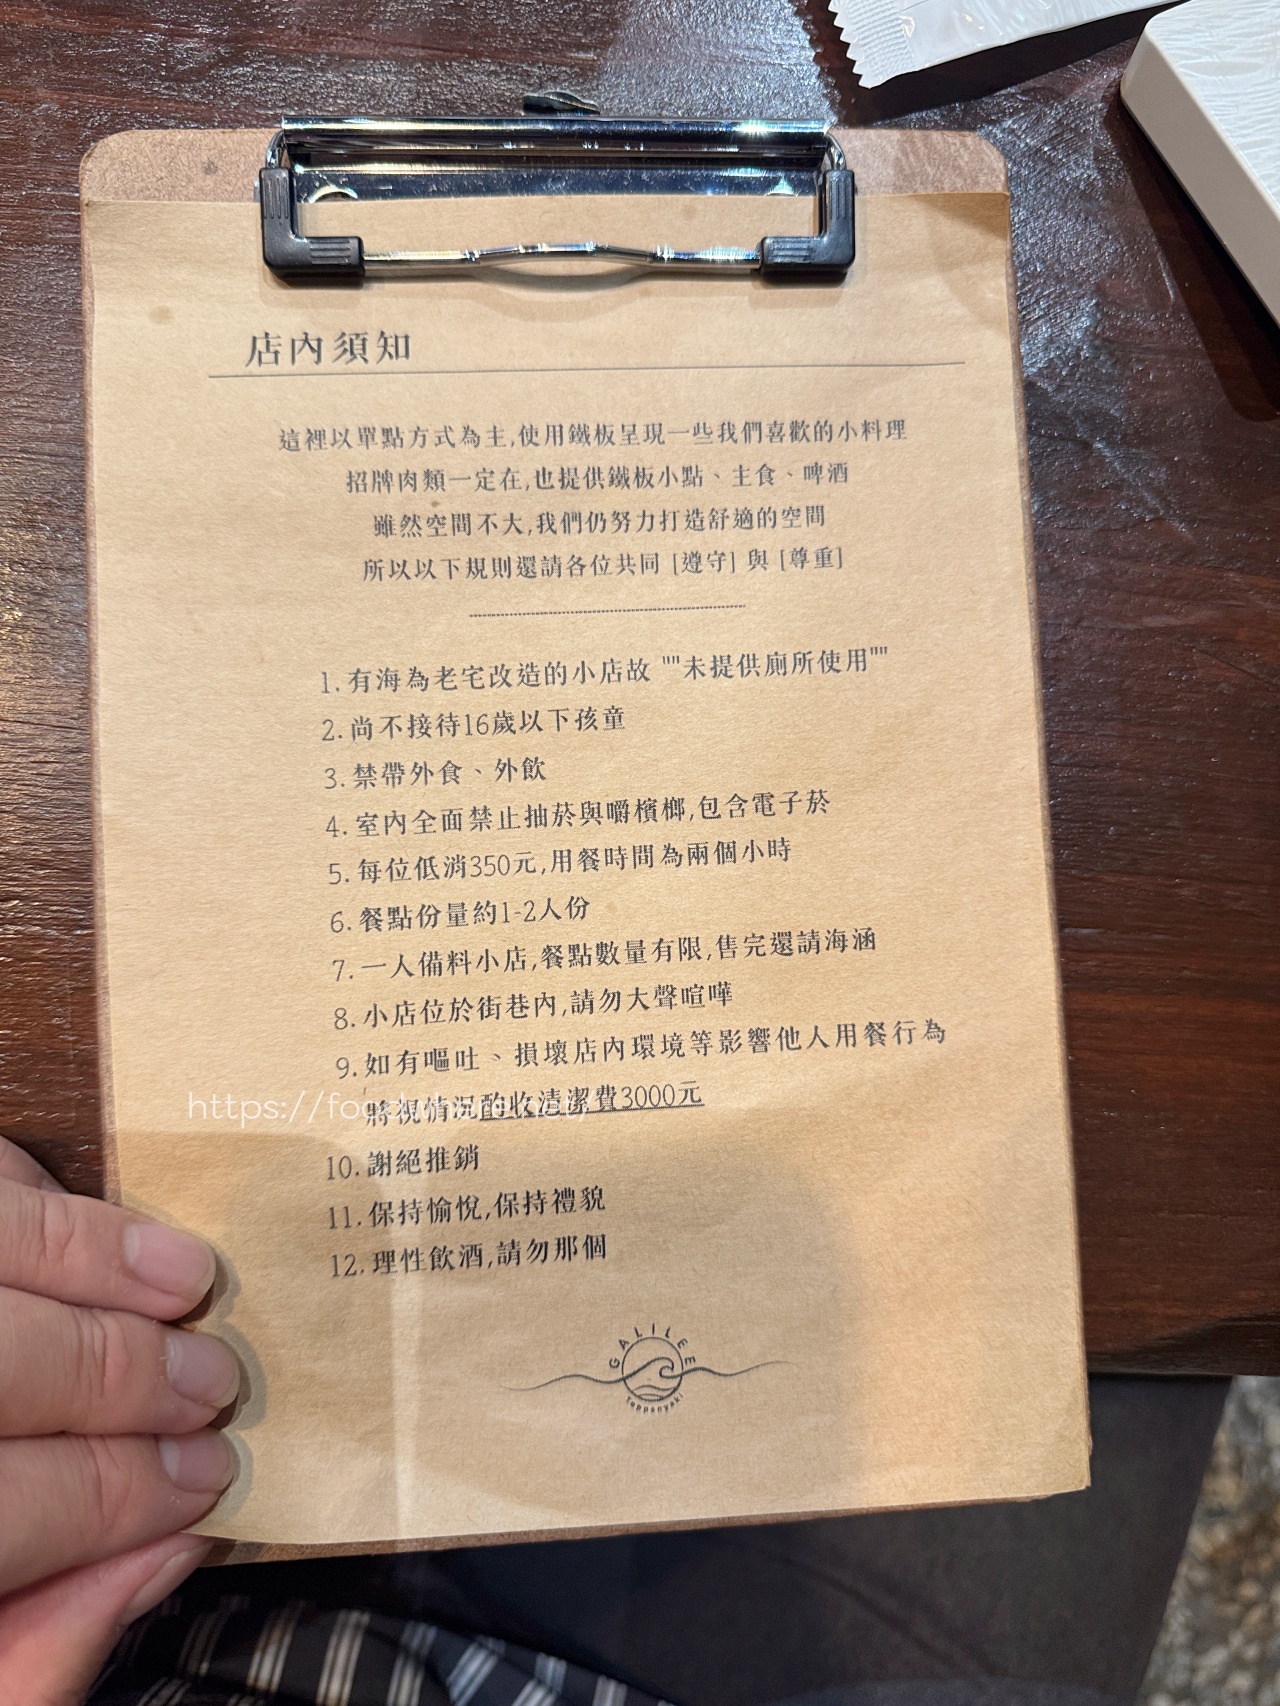 店內須知
這裡以單點方式為主,使用鐵板呈現一些我們喜歡的小料理
招牌肉類一定在,也提供鐵板小點、主食、啤酒
雖然空間不大,我們仍努力打造舒適的空間
所以以下規則還請各位共同 [遵守] 與 [尊重]
1. 有海為老宅改造的小店故 ""未提供廁所使用""
2. 尚不接待16歲以下孩童
3. 禁帶外食、外飲
4. 室內全面禁止抽菸與嚼檳榔,包含電子菸
5. 每位低消350元,用餐時間為兩個小時
6. 餐點份量約1-2人份
7. 一人備料小店,餐點數量有限,售完還請海涵
8. 小店位於街巷內,請勿大聲喧嘩
9. 如有嘔吐、損壞店內環境等影響他人用餐行為
將視情況酌收清潔費3000元
10. 謝絕推銷
11. 保持愉悅,保持禮貌
12. 理性飲酒,請勿那個
GALILEE
Teppanyaki